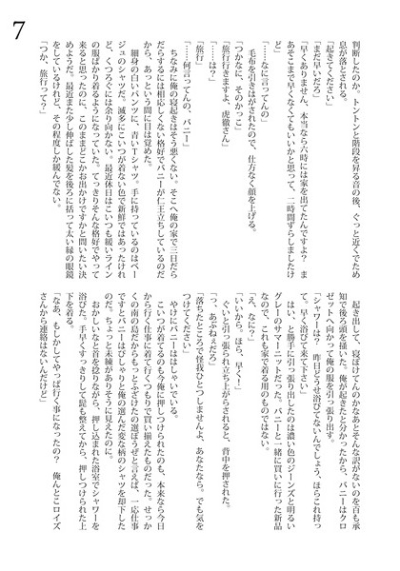 7
判断したのか、トントンと階段を昇る音の後、ぐっと近くでため
息が落とされる。
「起きてください」
「まだ早いだろ」
「早くありません、本当なら六時には家を出てたんですよ？　ま
あそこまで早くなくてもいいかと思って、二時間ずらしましたけ
ど」
「……なに言ってんの」
　毛布を引きはがされたので、仕方なく顔を上げる。
「つかなに、そのかっこ」
「旅行行きますよ、虎徹さん」
「……は？」
「旅行」
「……何言ってんの、バニー」
　ちなみに俺の寝起きはそう悪くない。そこへ俺の家で三日だら
だらするには相応しくない格好でバニーが仁王立ちしているのだ
から、あっという間に目は覚めた。
　細身の白いパンツに、青いTシャツ。手に持っているのはベー
ジュのシャツだ。滅多にこいつが着ない色で新鮮ではあったけれ
ど、くつろぐには余り向かない。最近休日はこいつも緩いライン
の服ばかり着るようになっていた。てっきりそんな格好でやって
来ると思ったのに、このままどこかお出かけですかと問いたい決
めようだ。最近また少し伸ばした髪を後ろに括って太い縁の眼鏡
をしているけれど、その程度しか緩んでない。
「つか、旅行ってう？」
　起き出して、寝ぼけてんのかなあとそんな訳がないのを百も承
知で後ろ頭を掻いた。俺が起きたと分かったから、バニーはクロ
ゼットへ向かって俺の服を引っ張り出す。
「シャワーは？　昨日どうせ浴びてないんでしょう、ほらこれ持っ
て。早く浴びて来て下さい」
　はい、と勝手に引っ張り出したのは濃い色のジーンズと明るい
グレーのサマーニットだった。バニーと一緒に買いに行った新品
なので、これも家で着る用のものではない。
「え、なに？」
「いいから。ほら、早く！」
　ぐいと引っ張られ立ち上がらされると、背中を押された。
「っ、あぶねぇだろ」
「落ちたところで怪我ひとつしませんよ、あなたなら。でも気を
つけてください」
　やけにバニーははしゃいでいる。
　こいつが着てるのも今俺に押しつけられたのも、本来なら今日
から行く仕事に着て行くつもりで買い揃えたものだった。せっか
くの南の島だからもっとふざけたの選ぼうぜと言えば、一応仕事
ですとバニーはぴしゃりと俺の選んだ変な柄のシャツを却下した
のだ。ちょっと未練がありそうに見えたのに。
　おかしいなと首を捻りながら、押し込まれた浴室でシャワーを
浴びた。手早くすっきりして髭も整えてから、押しつけられた上
下を着る。
「なあ、もしかしてやっぱ行く事になったの？　俺んとこロイズ
さんから連絡はないんだけど」